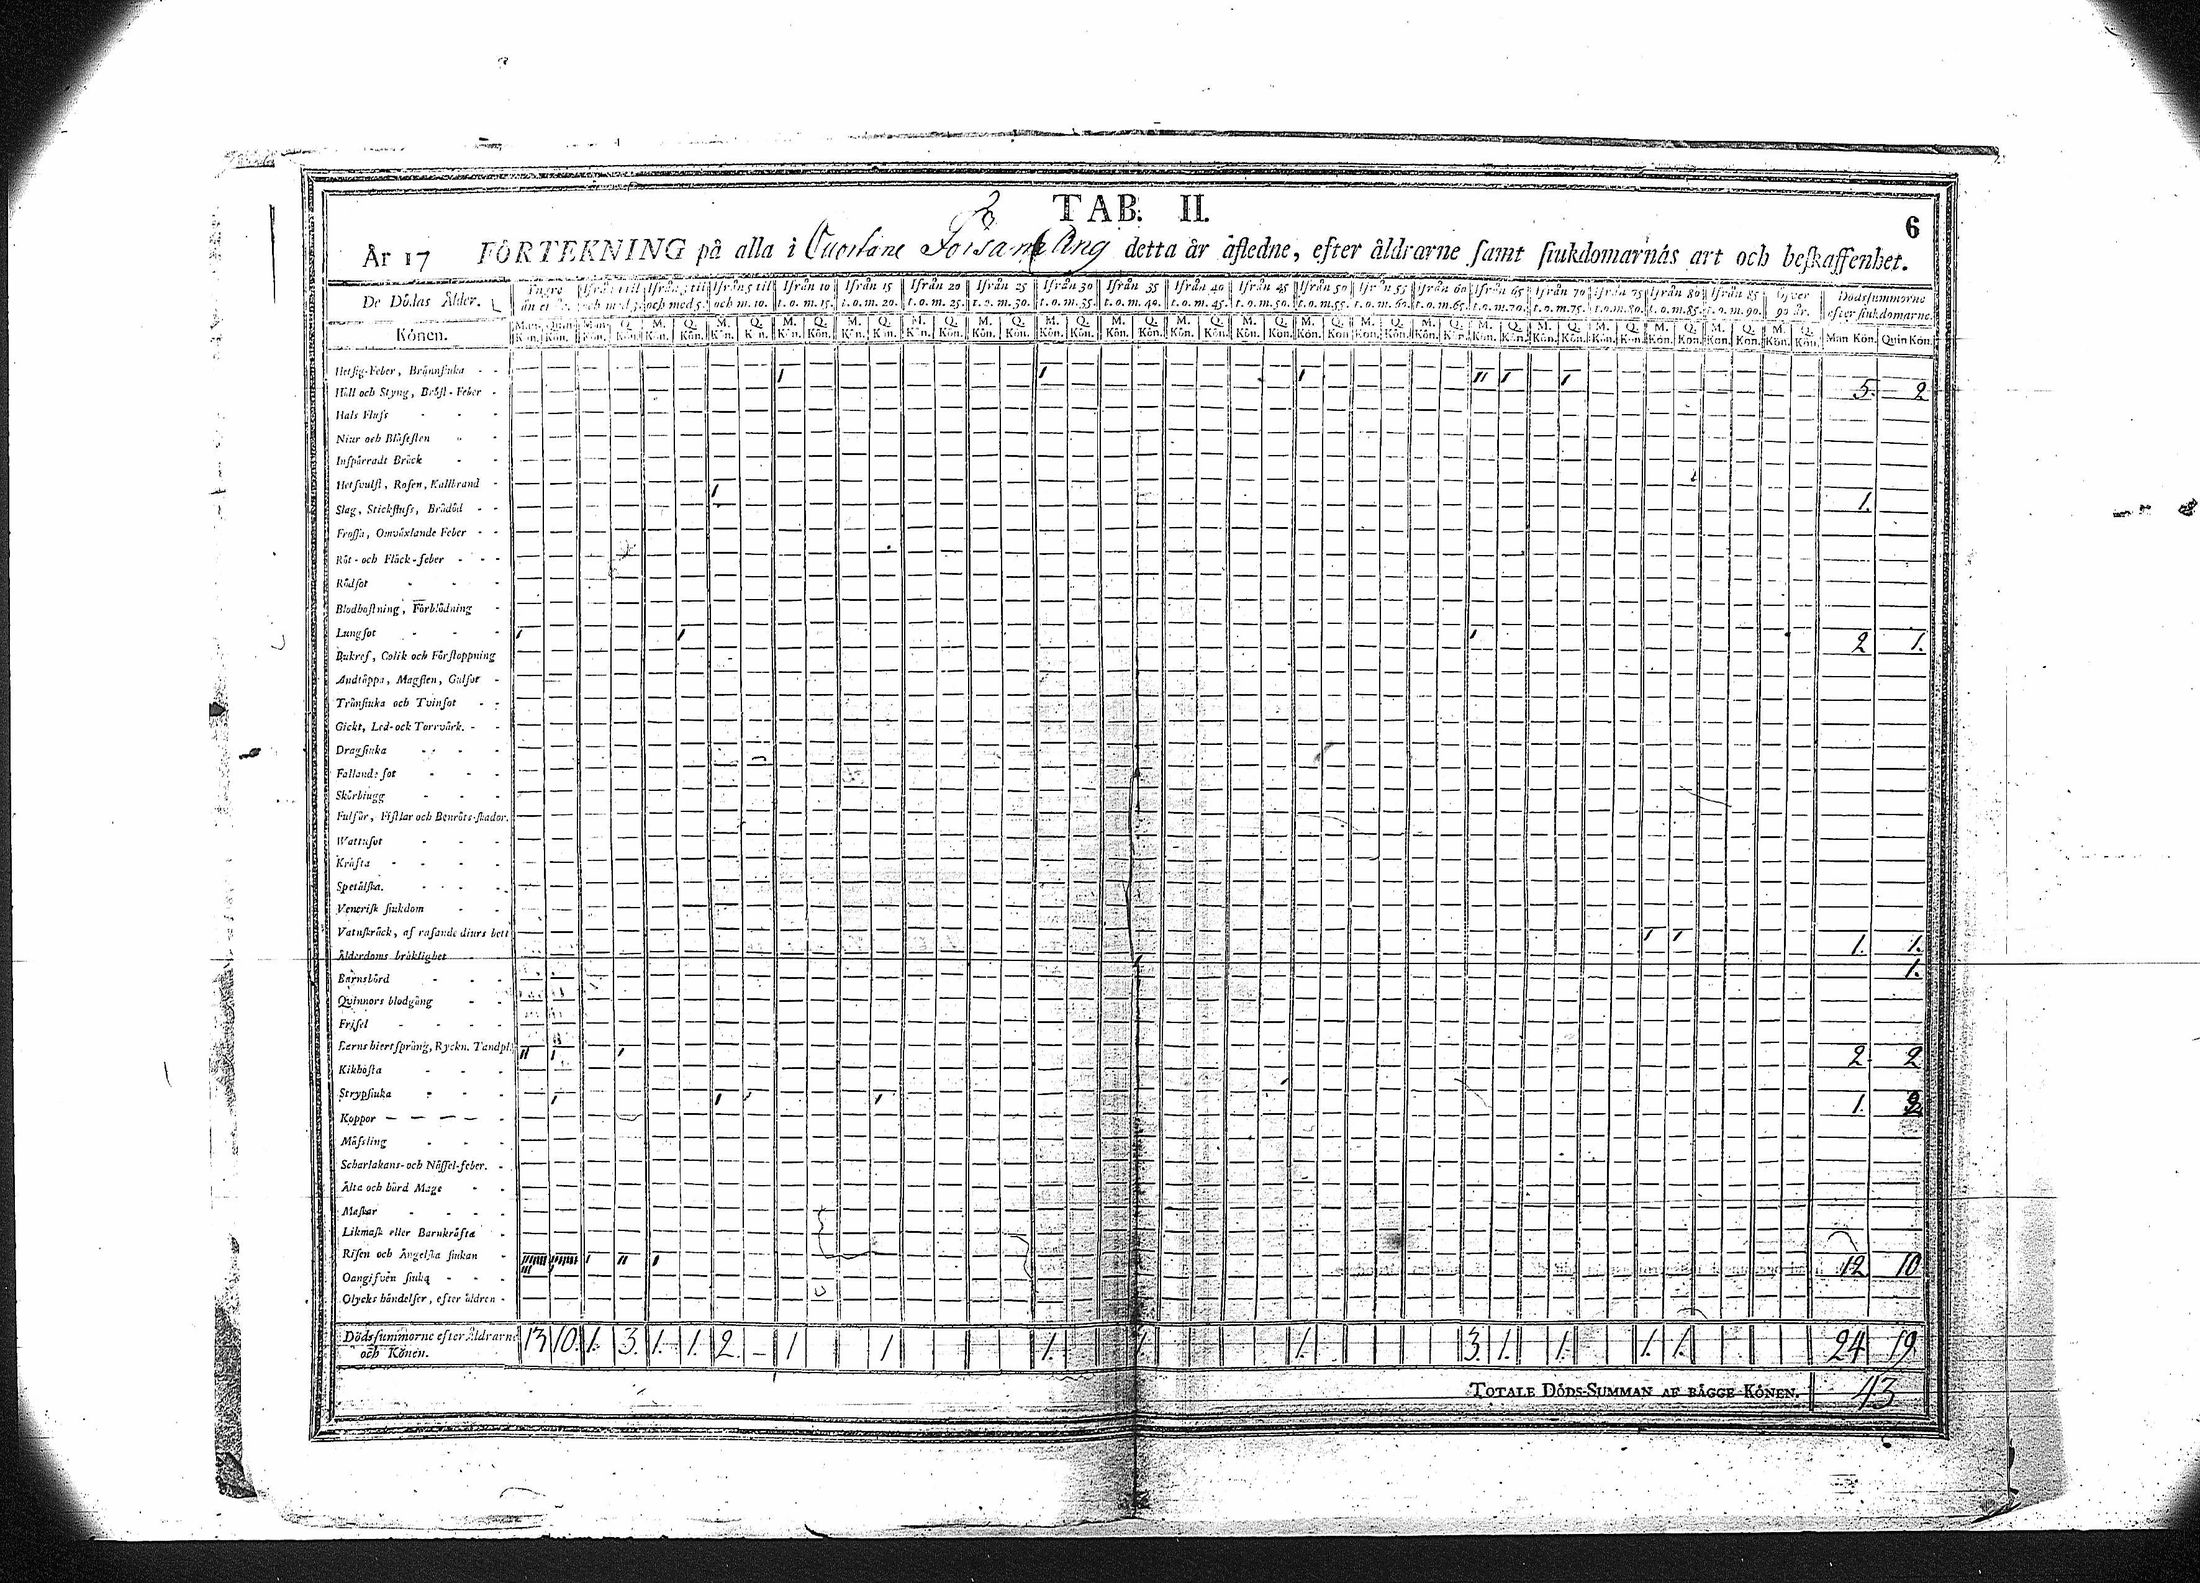 TAB. II.
6
År 17 FÖRTEKNING på alla i Församling detta år afledne, efter åldrarne samt siukdomarnas art och beskaffenhet.
De Dödas Ålder. Yngre än et år. Ifrån 1 till och med 3. Ifrån 3 till och med 5. Ifrån 5 til och m. 10. Ifrån 10 t. o. m. 15. Ifrån 15 t. o. m. 20. Ifrån 20 t. o. m. 25. Ifrån 25 t. o. m. 30. Ifrån 30 t. o. m. 35. Ifrån 35 t. o. m. 40. Ifrån 40 t. o. m. 45. Ifrån 45 t. o. m. 50. Ifrån 50 t. o. m. 55. Ifrån 55 t. o. m. 60. Ifrån 60 t. o. m. 65. Ifrån 65 t. o. m. 70. Ifrån 70 t. o. m. 75. Ifrån 75 t. o. m. 80. Ifrån 80 t. o. m. 85. Ifrån 85 t. o. m. 90. Öfver 90 år. Dödssummorne efter siukdomarne.
Könen. Man Kön. Quin Kön. Man Kön. Q. Kön. M. Kön. Q. Kön. M. Kön. Q. Kön. M. Kön. Q. Kön. M. Kön. Q. Kön. M. Kön. Q. Kön. M. Kön. Q. Kön. M. Kön. Q. Kön. M. Kön. Q. Kön. M. Kön. Q. Kön. M. Kön. Q. Kön. M. Kön. Q. Kön. M. Kön. Q. Kön. M. Kön. Q. Kön. M. Kön. Q. Kön. M. Kön. Q. Kön. M. Kön. Q. Kön. M. Kön. Q. Kön. M. Kön. Q. Kön. M. Kön. Q. Kön. Man Kön. Quin Kön.
Hetsig-Feber, Brännsiuka
Håll och Styng, Bröst-Feber 5. 2
Hals Fluss
Niur och Blåsesten
Inspärradt Bråck
Hetsvulst, Rosen, Kallbrand
Slag, Stickfluss, Brådöd 1.
Frossa, Omväxlande Feber
Röt- och Fläck-feber
Rödsot
Blodhostning, Förblödning
Lungsot 2 1.
Bukref, Colik och Förstoppning
Andtäppa, Magsten, Gulsot
Trånsiuka och Tvinsot
Gickt, Led- ock Torrvärk.
Dragsiuka
Fallande sot
Skörbiugg
Fulsår, Fistlar och Benröts-skador.
Wattusot
Kräfta
Spetälska.
Venerisk siukdom
Vatuskräck, af rasande diurs bett
Ålderdoms bräklighet 1. 1.
Barnsbörd 1.
Quinnors blodgång
Frisel
Barns hiertsprång, Ryckn. Tandpl. 2 2
Kikhosta
Strypsiuka 1. 2
Koppor
Mässling
Scharlakans- och Nässel-feber.
Älta och hård Mage
Maskar
Likmask eller Barnkräfta
Risen och Ängelska siukan 12 10
Oangifven siuka
Olycks händelser, efter åldren
Dödssummorne efter Åldrarne och Könen. 13 10. 1. 3. 1. 1. 2. – 1 1 1. 1. 1. 3. 1. 1. 1. 1. 24 19
TOTALE DÖDS-SUMMAN AF BÄGGE KÖNEN. 43